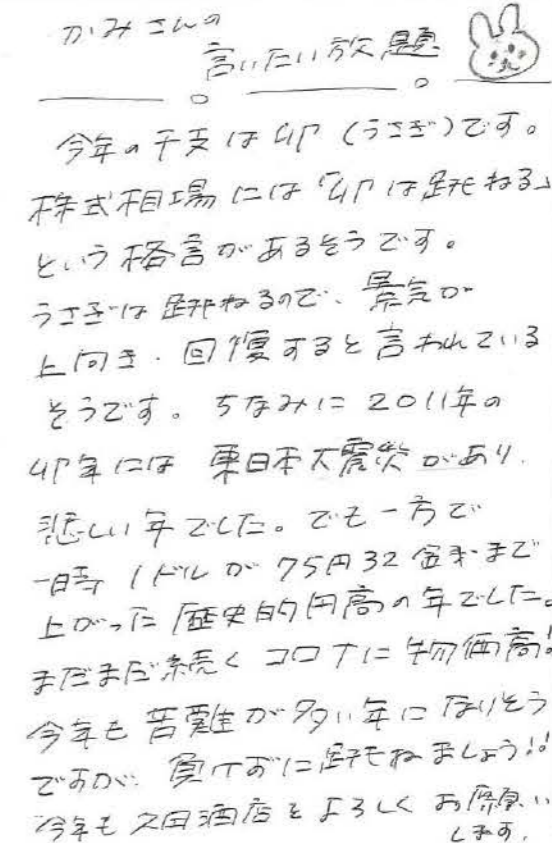 かみさんの
言いたい放題
今年の干支は卯(うさぎ)です。
株式相場には「卯は跳ねる」
という格言があるそうです。
うさぎは跳ねるので、景気が
上向き、回復すると言われている
そうです。ちなみに2011年の
卯年には 東日本大震災があり、
悲しい年でした。でも一方で
一時1ドルが75円32銭まで
上がった歴史的円高の年でした。
まだまだ続くコロナに物価高!
今年も苦難が多い年になりそう
ですが、負けずに跳ねましょう!!
今年も久田酒店をよろしくお願い
します。